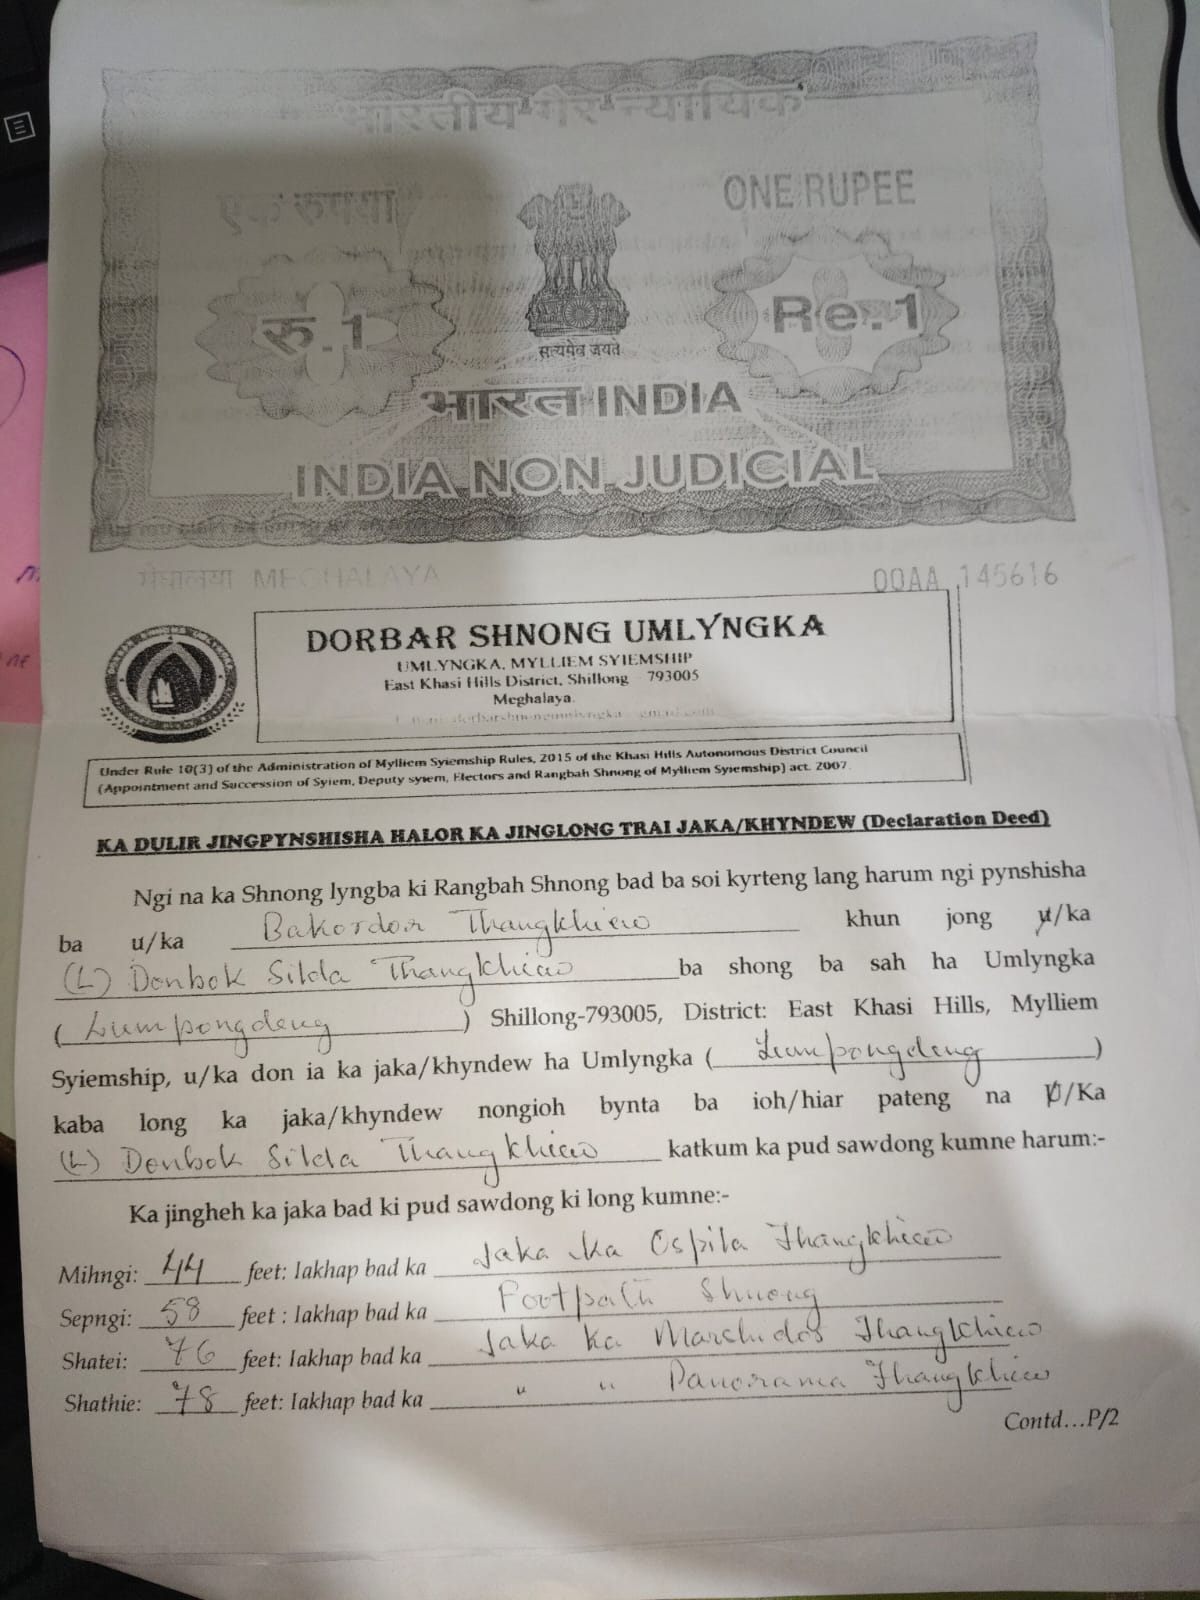 भारतीय गैर न्यायिक
एक रुपया
ONE RUPEE
रु.1
Re.1
सत्यमेव जयते
भारत INDIA
INDIA NON JUDICIAL
मेघालया MEGHALAYA
00AA 145616
DORBAR SHNONG UMLYNGKA
UMLYNGKA, MYLLIEM SYIEMSHIP
East Khasi Hills District, Shillong 793005
Meghalaya.
Under Rule 10(3) of the Administration of Mylliem Syiemship Rules, 2015 of the Khasi Hills Autonomous District Council
(Appointment and Succession of Syiem, Deputy syiem, Electors and Rangbah Shnong of Mylliem Syiemship) act. 2007.
KA DULIR JINGPYNSHISHA HALOR KA JINGLONG TRAI JAKA/KHYNDEW (Declaration Deed)
Ngi na ka Shnong lyngba ki Rangbah Shnong bad ba soi kyrteng lang harum ngi pynshisha
ba u/ka Bakordor Thangkhiew khun jong u/ka
(L) Donbok Silda Thangkhiew ba shong ba sah ha Umlyngka
(Lumpongdeng) Shillong-793005, District: East Khasi Hills, Mylliem
Syiemship, u/ka don ia ka jaka/khyndew ha Umlyngka (Lumpongdeng)
kaba long ka jaka/khyndew nongioh bynta ba ioh/hiar pateng na U/Ka
(L) Donbok Silda Thangkhiew katkum ka pud sawdong kumne harum:-
Ka jingheh ka jaka bad ki pud sawdong ki long kumne:-
Mihngi: 44 feet: lakhap bad ka Jaka ka Ospila Thangkhiew
Sepngi: 58 feet : lakhap bad ka Footpath Shnong
Shatei: 76 feet: lakhap bad ka Jaka ka Marchidos Thangkhiew
Shathie: 78 feet: lakhap bad ka " " Panorama Thangkhiew
Contd...P/2